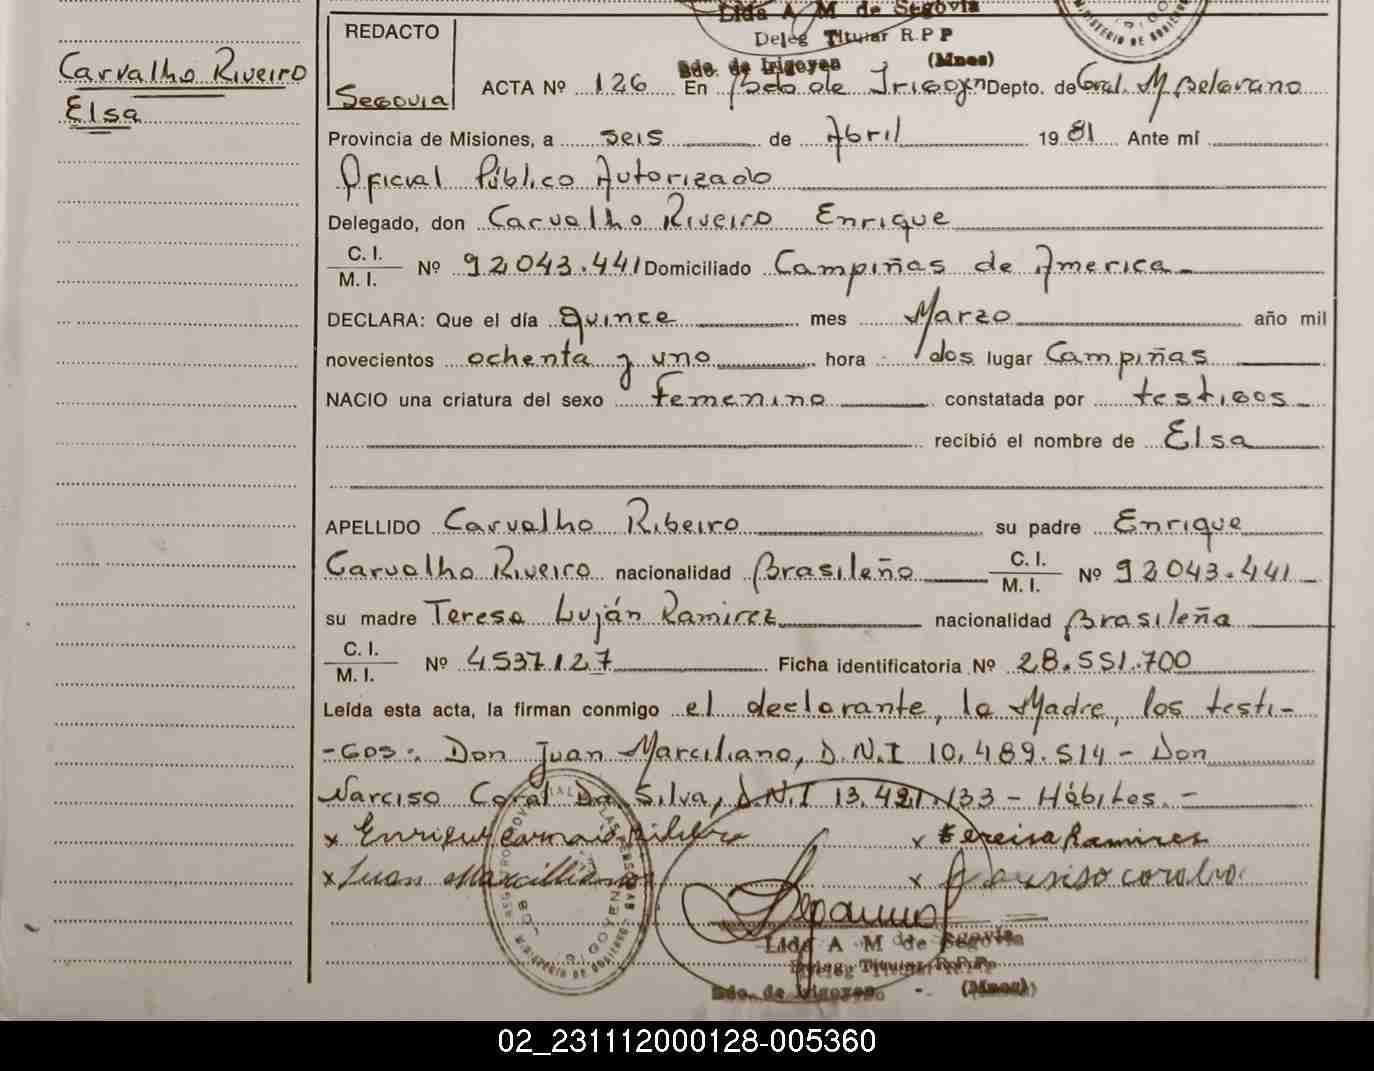 Lida A M de Segovia
Deleg Titular R.P.P
Bdo. de Irigoyen (Mnes)
Carvalho Riveiro
Elsa
REDACTO
Segovia
ACTA Nº 126 En Bdo de Irigoyn Depto. de Gral. M Belgrano
Provincia de Misiones, a seis de Abril 1981 Ante mí
Oficial Público Autorizado
Delegado, don Carvalho Riveiro Enrique
C. I.
M. I. Nº 92043.441 Domiciliado Campiñas de America
DECLARA: Que el día quince mes Marzo año mil
novecientos ochenta y uno hora dos lugar Campiñas
NACIO una criatura del sexo femenino constatada por testigos
recibió el nombre de Elsa
APELLIDO Carvalho Ribeiro su padre Enrique
Carvalho Riveiro nacionalidad Brasileño C. I. M. I. Nº 92043.441
su madre Teresa Luján Ramirez nacionalidad Brasileña
C. I.
M. I. Nº 4537127 Ficha identificatoria Nº 28.551.700
Leída esta acta, la firman conmigo el declarante, la Madre, los testi-
-gos: Don Juan Marciliano, D.N.I 10.489.514 - Don
Narciso Coral Da Silva, D.N.I 13.421.133 - Hábiles. -
x Enrique x tereisa Ramires
x Juan Marcilliano x
Lida A M de Segovia
Deleg Titular R.P.P.
Bdo. de Irigoyen - (Mnes)
02_231112000128-005360